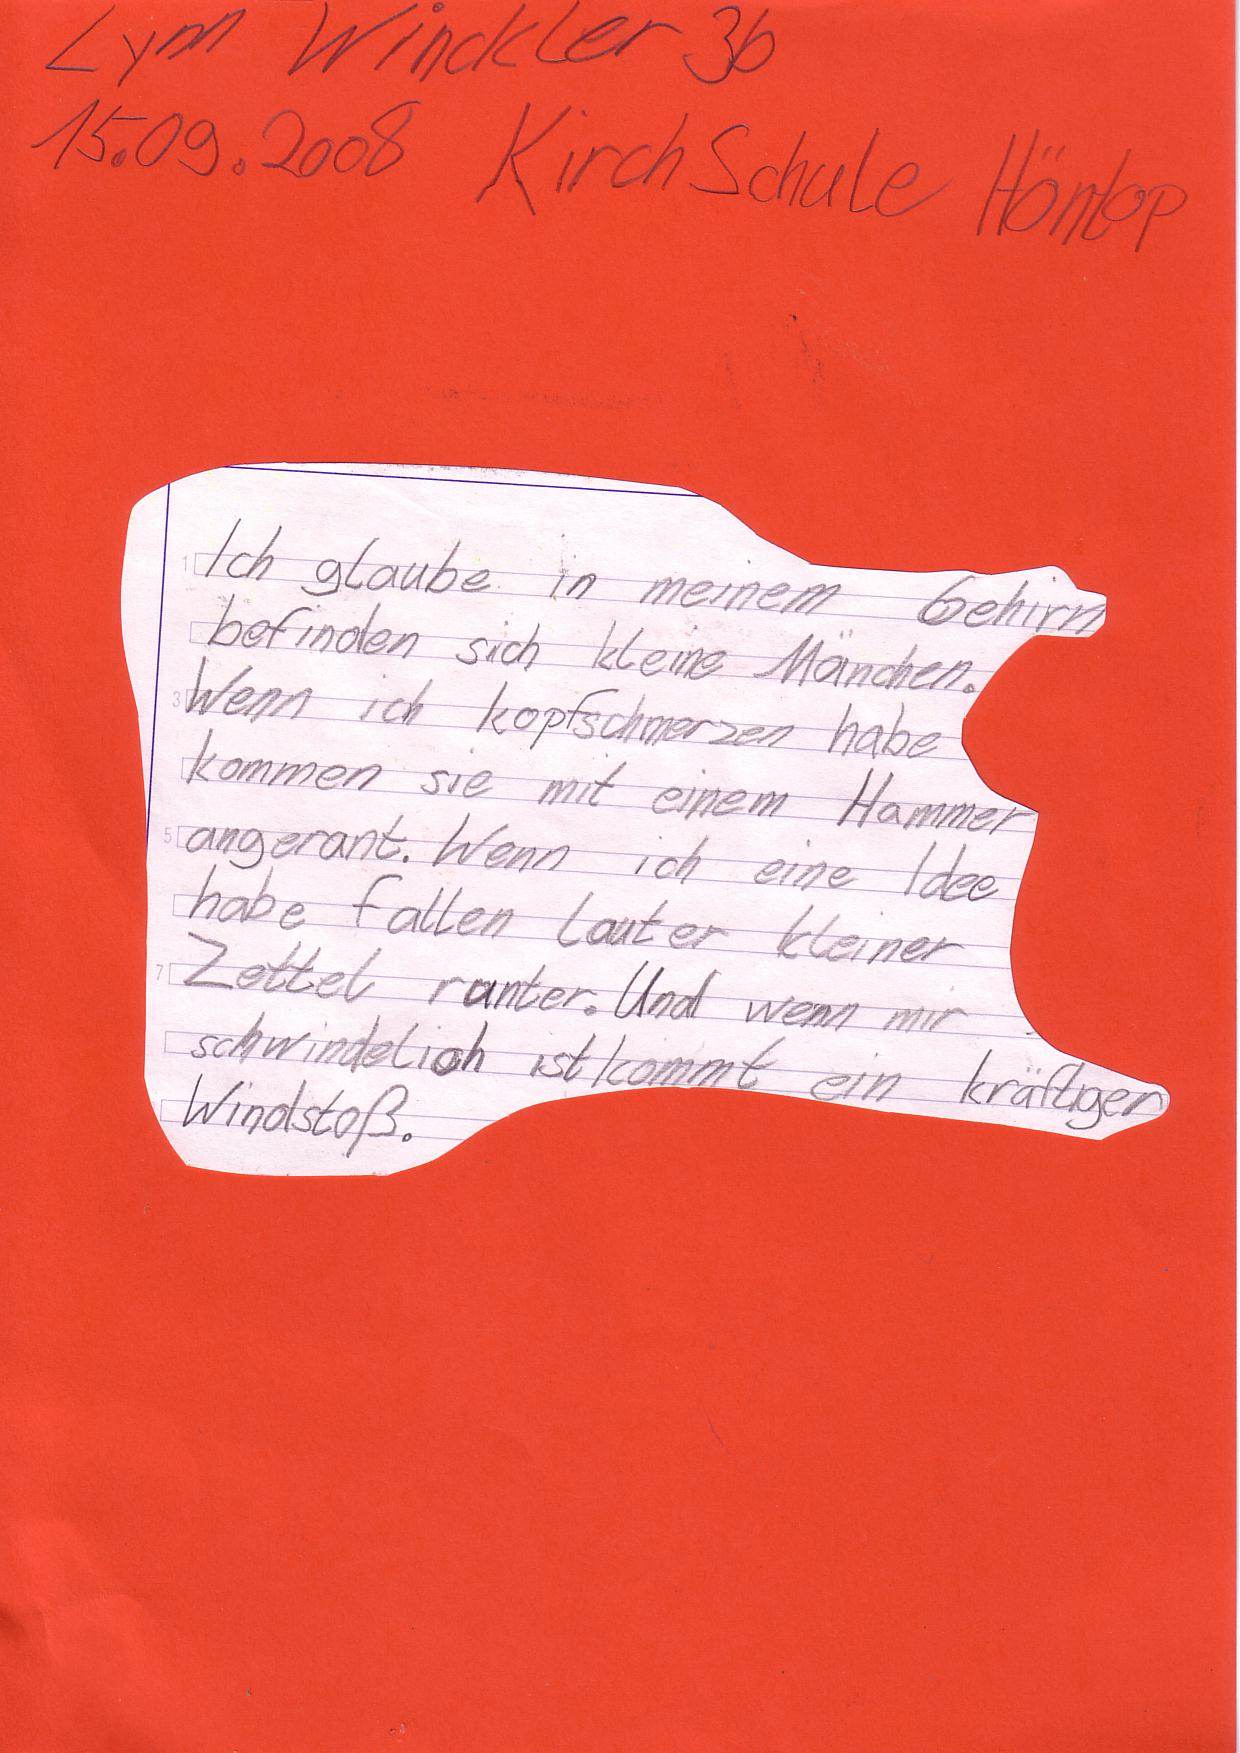 Lynn Winckler 3b
15.09.2008 Kirchschule Höntop
Ich glaube in meinem Gehirn
befinden sich kleine Mänchen.
Wenn ich kopfschmerzen habe
kommen sie mit einem Hammer
angerant. Wenn ich eine Idee
habe fallen lauter kleiner
Zettel runter. Und wenn mir
schwindelich ist kommt ein kräftiger
Windstoß.